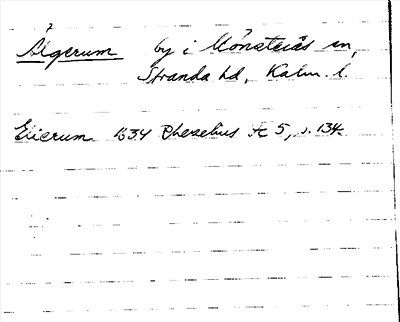 Ålgerum by i Mönsterås sn,
Stranda hd, Kalm. l.
Elierum 1634 Rhezelius Ac 5, s. 134.